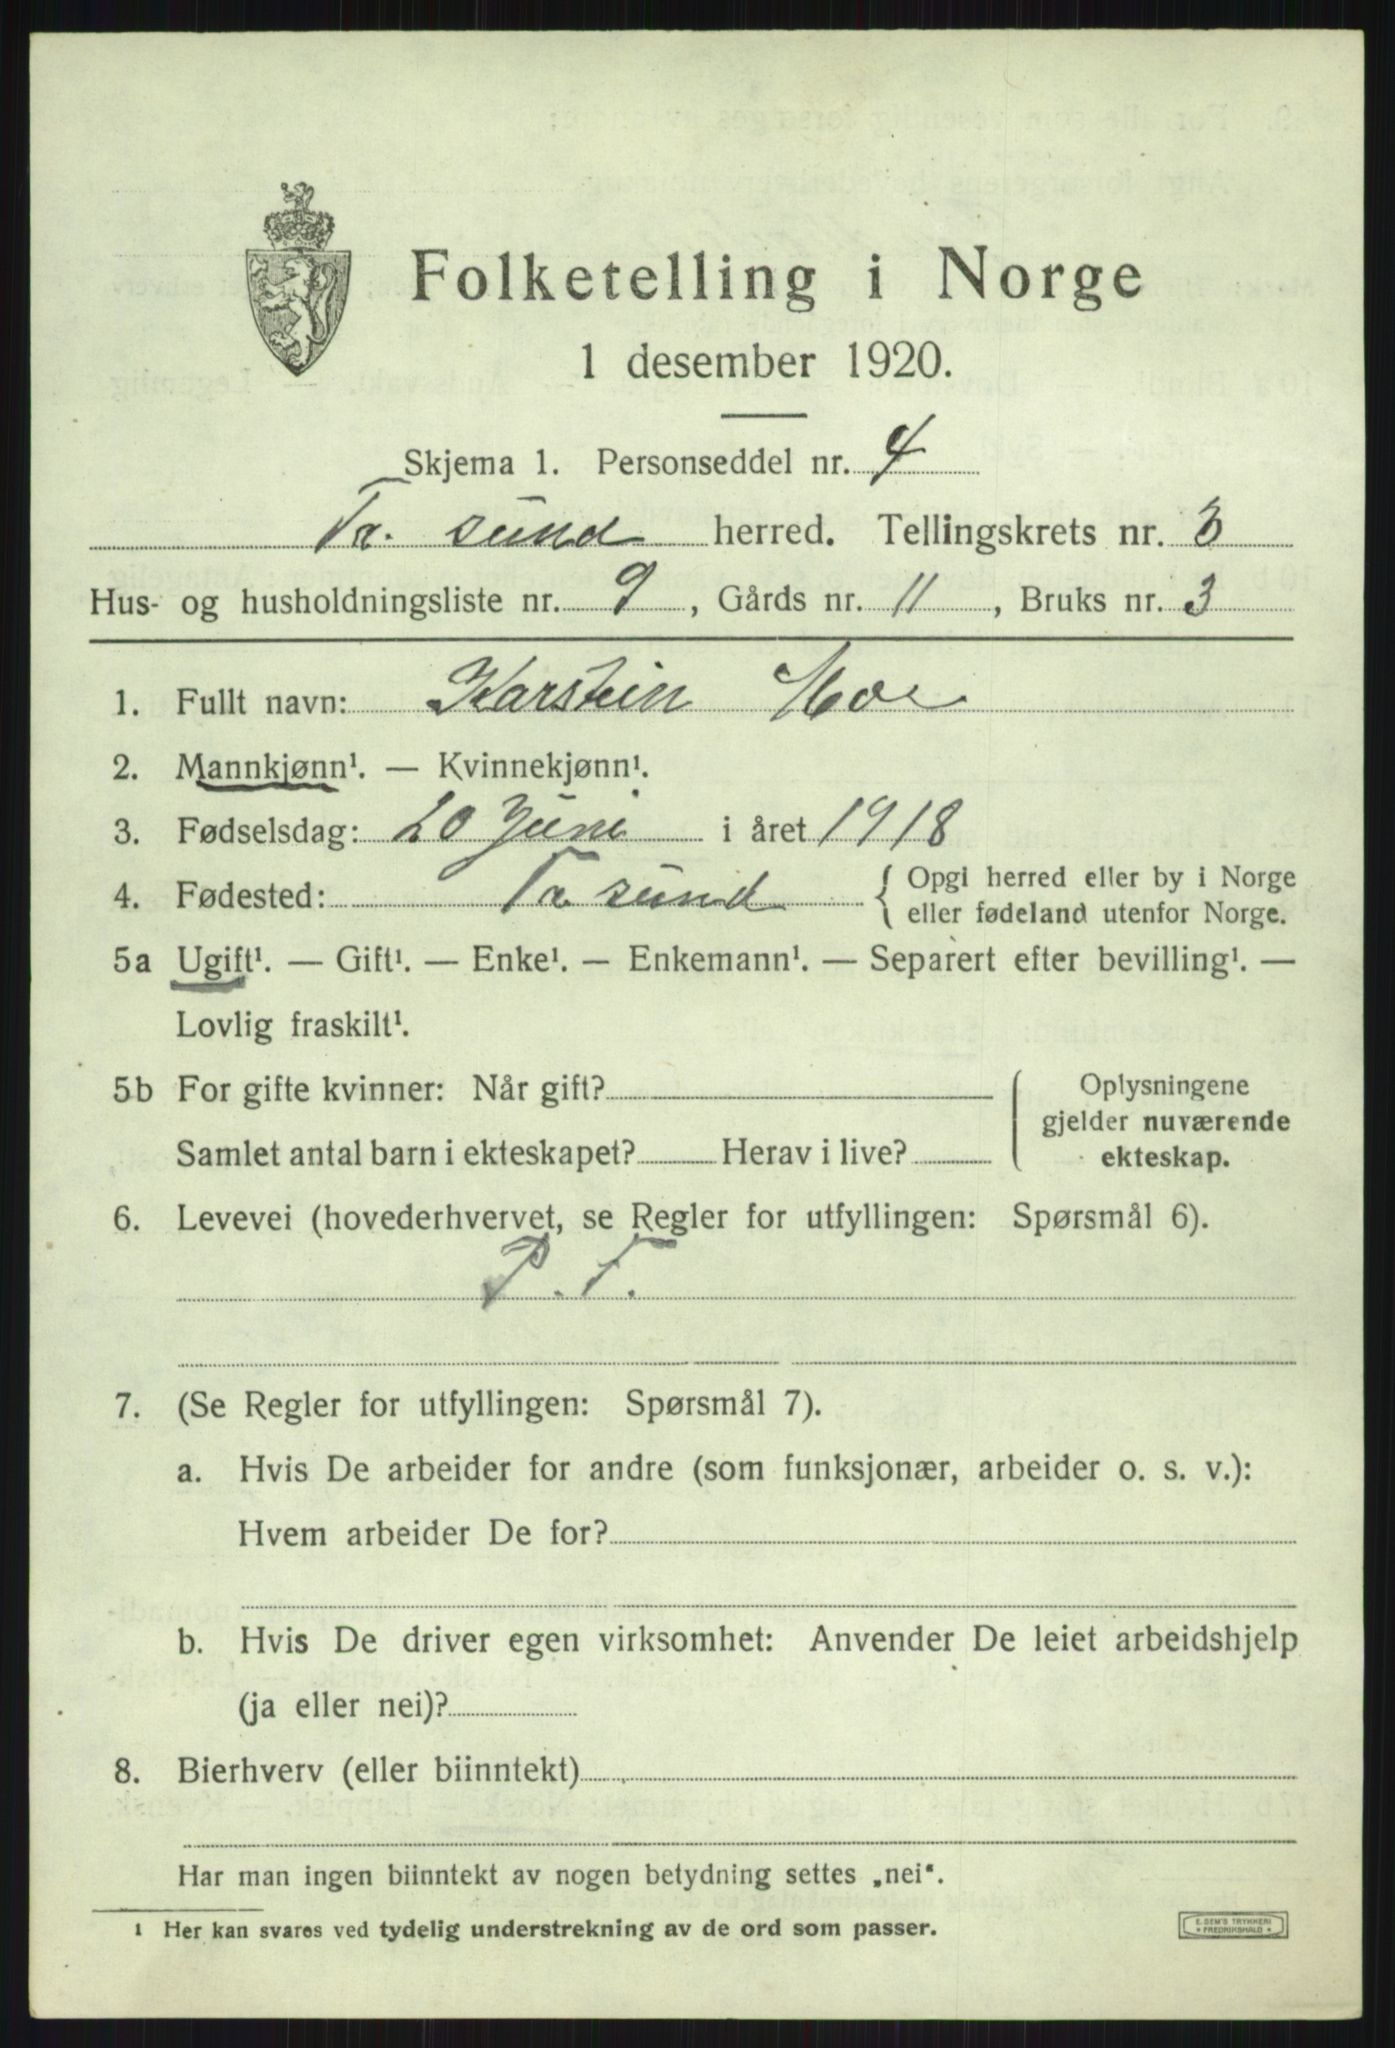 Folketelling i Norge
1 desember 1920.
Skjema 1. Personseddel nr. 4
Tr. sund herred. Tellingskrets nr. 3
Hus- og husholdningsliste nr. 9, Gårds nr. 11, Bruks nr. 3
1. Fullt navn: Karstein Moe
2. Mannkjønn¹. — Kvinnekjønn¹.
3. Fødselsdag: 20 Juni i året 1918
4. Fødested: Tr. sund { Opgi herred eller by i Norge
eller fødeland utenfor Norge.
5a Ugift¹. — Gift¹. — Enke¹. — Enkemann¹. — Separert efter bevilling¹. —
Lovlig fraskilt¹.
5b For gifte kvinner: Når gift?
Samlet antal barn i ekteskapet? Herav i live?
Oplysningene
gjelder nuværende
ekteskap.
6. Levevei (hovederhvervet, se Regler for utfyllingen: Spørsmål 6).
P. F.
7. (Se Regler for utfyllingen: Spørsmål 7).
a. Hvis De arbeider for andre (som funksjonær, arbeider o. s. v.):
Hvem arbeider De for?
b. Hvis De driver egen virksomhet: Anvender De leiet arbeidshjelp
(ja eller nei)?
8. Bierhverv (eller biinntekt)
Har man ingen biinntekt av nogen betydning settes „nei“.
¹ Her kan svares ved tydelig understrekning av de ord som passer.
E. SEM'S TRYKKERI
* FREDRIKSHALD *